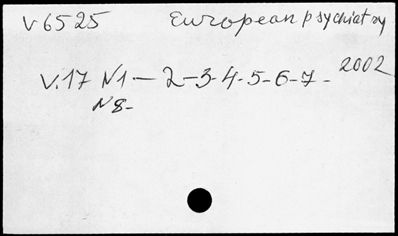 V6525 European psychiatry
V.17 N1 - 2-3-4-5-6-7- 2002
N8-